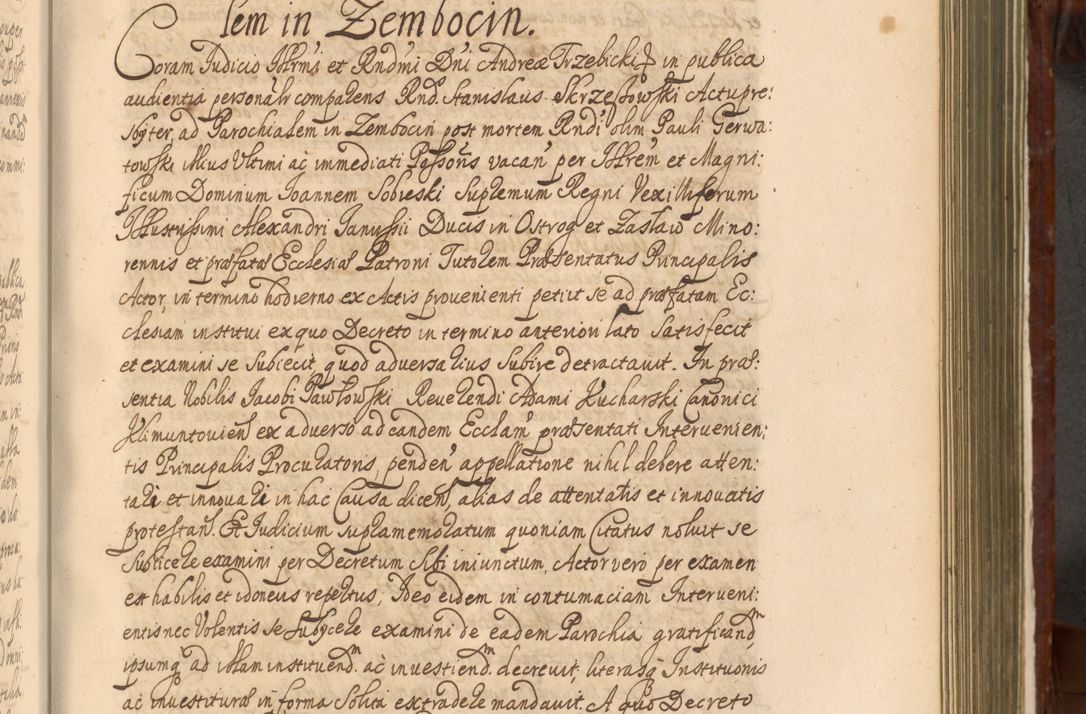 lem in Zembocin.
Coram Judicio Illr̃mi et Rndmi Dni Andreæ Trzebicki in publica
audientia personalr compalens Rnd. Stanislaus Skrzeſtowſki Actu pre:
sbyter, ad Parochialem in Zembocin post mortem Rndi olim Pauli Gerwa:
towſki illius Ultimi ac immediati Poſsoris vacan̄ per Illr̃em et Magni:
ficum Dominum Joannem Sobieski Supremum Regni Vexilliferum
Illustrissimi Alexandri Januſsii Ducis in Ostrog et Zaslaw Mino:
rennis et præfatæ Ecclesiæ Patroni Tutorem Præsentatus Principalis
Actor, in termino hodierno ex Actis provenienti petiit se ad præfatam Ec:
clesiam institui ex quo Decreto in termino anteriori lato Satisfecit
et examini se Subiecit, quod adversarius Subire detractauit. In præ:
sentia Nobilis Jacobi Pawłowſki Reverendi Adami Kucharski Canonici
Klimuntovien̄ ex adverso ad eandem Ecclam præsentati Intervenien:
tis Principalis Procuratoris, penden̄ appellatione nihil debere atten:
tari et innovari in hac Causa dicen̄, alias de attentatis et innovatis
protestan̄. Et Judicium supramemoratum quoniam Citatus noluit se
Subiicere examini per Decretum Sibi iniunctum, Actor vero per examen
est habilis et idoneus repertus, Ideo eidem in contumaciam Interveni:
entis nec Volentis se Subycere examini de eadem Parochia gratificandm
ipsumq ad illam instituendm ac investiendm decrevit, literasq Institutionis
ac investituræ in forma Solita extradere mandauit. A quo Decreto